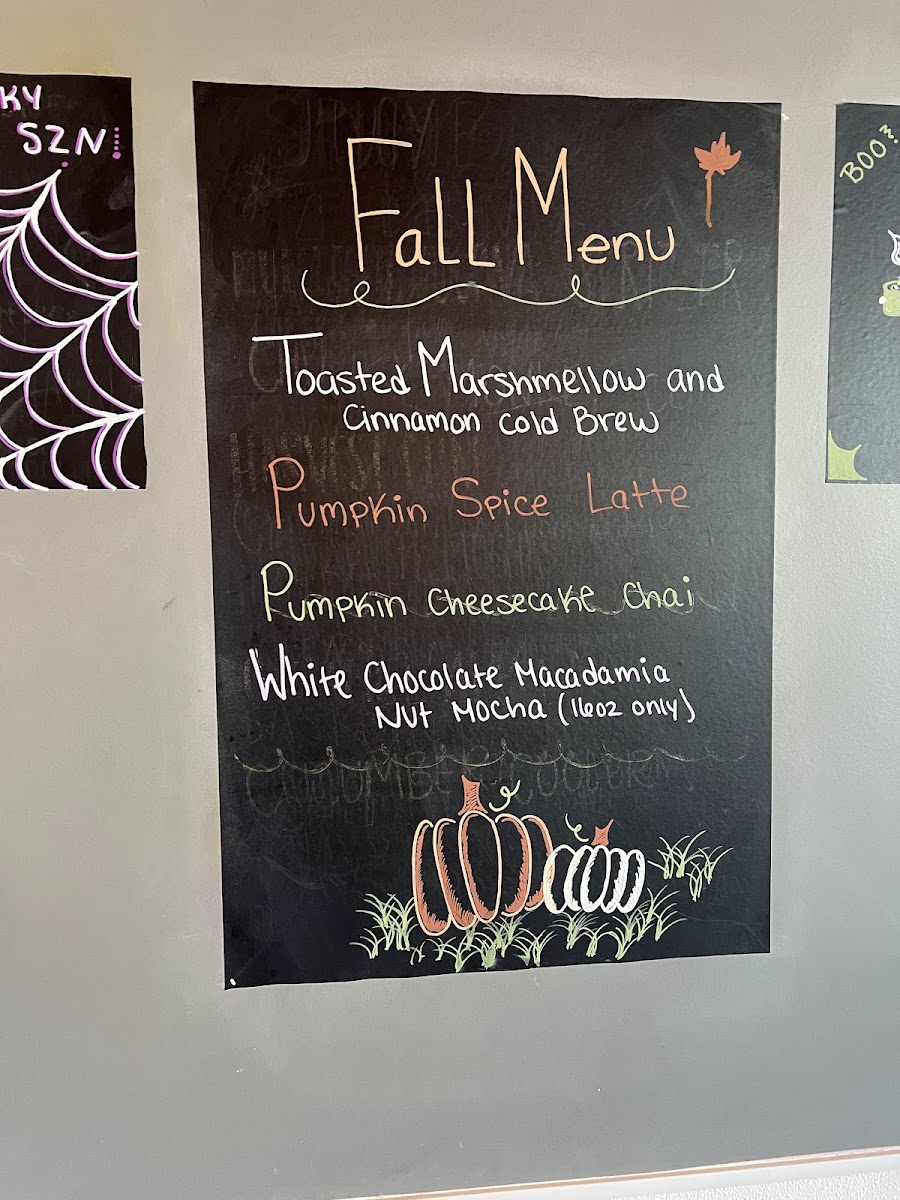 KY
SZN!
Fall Menu
Toasted Marshmellow and
Cinnamon Cold Brew
Pumpkin Spice Latte
Pumpkin Cheesecake Chai
White Chocolate Macadamia
Nut Mocha (16oz only)
CUCUMBER COOLER
BOO!